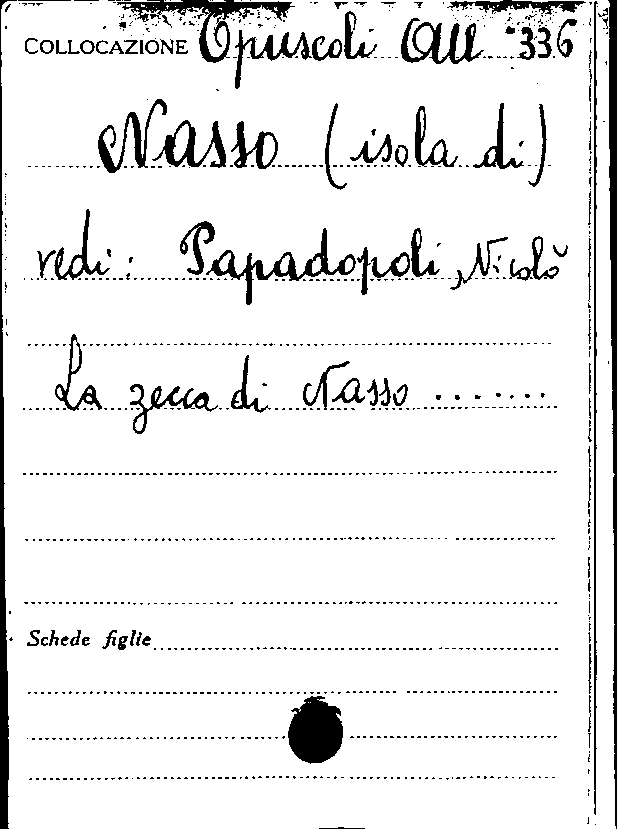 COLLOCAZIONE Opuscoli 336
Nasso (isola di)
vedi: Papadopoli, Nicolò
La zecca di Nasso .......
Schede figlie